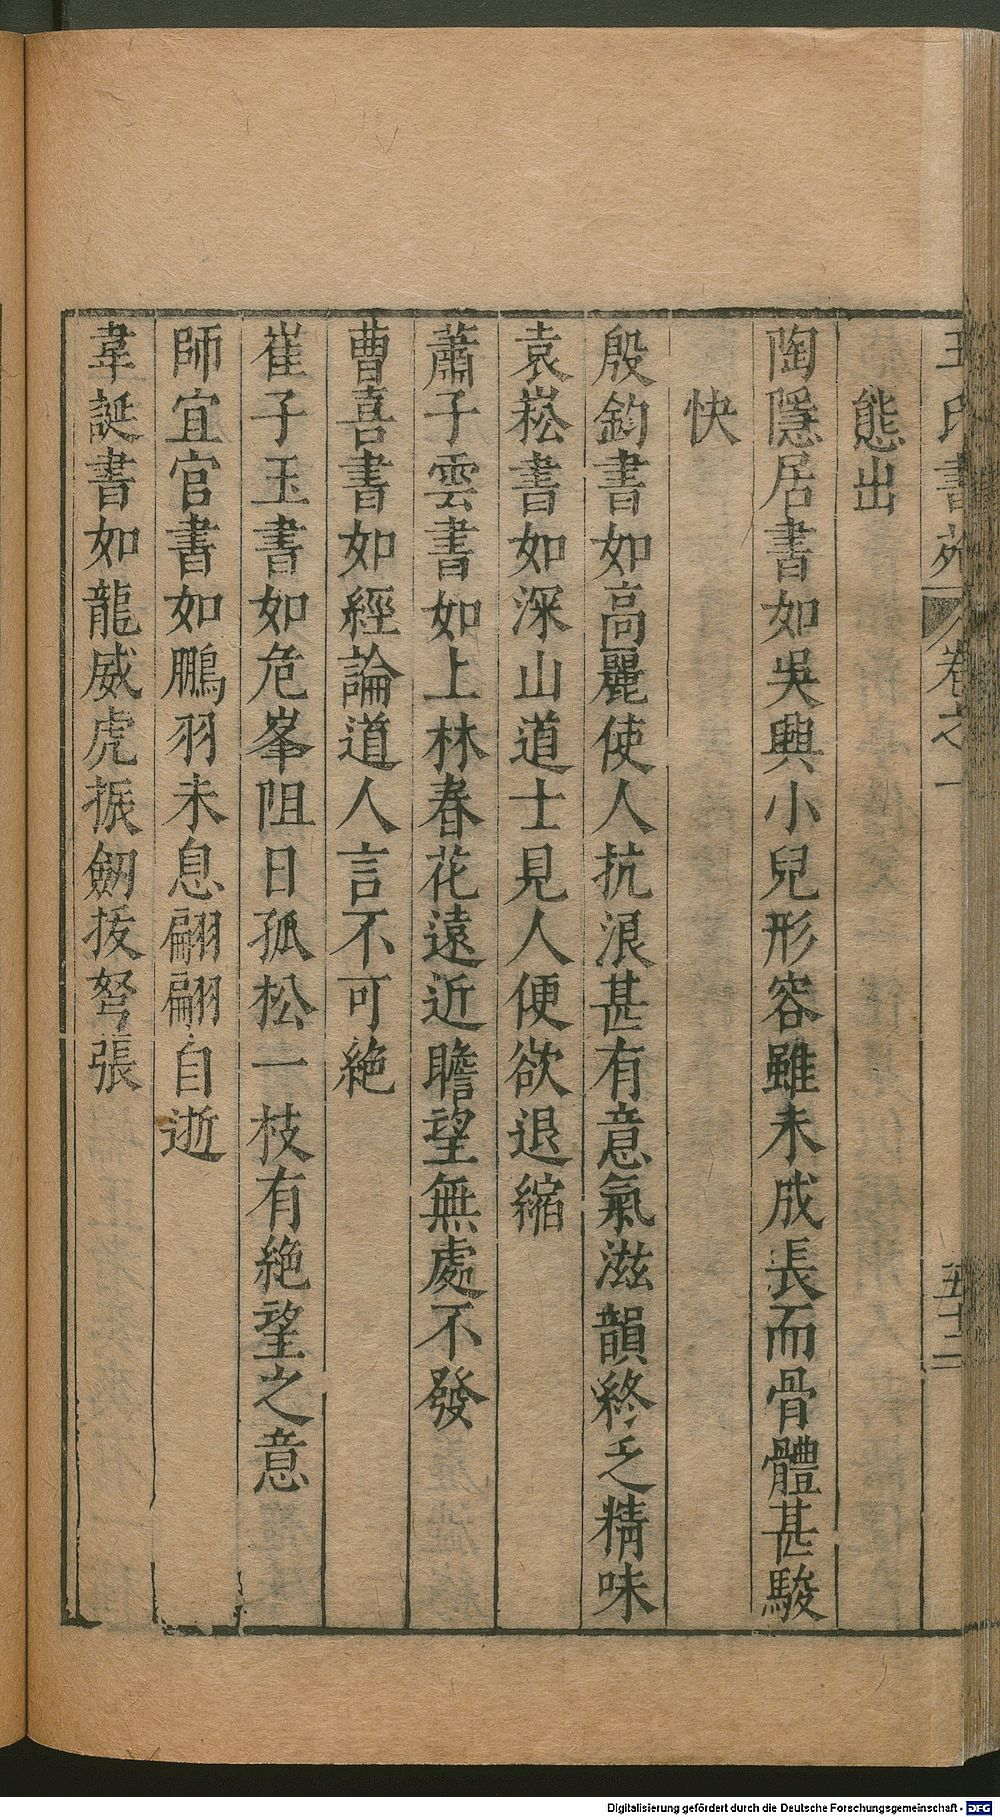 王氏書苑 卷之一 五十二
態出
陶隱居書如吳興小兒形容雖未成長而骨體甚駿
快
殷鈞書如高麗使人抗浪甚有意氣滋韻終乏精味
袁崧書如深山道士見人便欲退縮
蕭子雲書如上林春花遠近瞻望無處不發
曹喜書如經論道人言不可絶
崔子玉書如危峯阻日孤松一枝有絶望之意
師宜官書如鵬羽未息翩翩自逝
韋誕書如龍威虎振劒拔弩張
Digitalisierung gefördert durch die Deutsche Forschungsgemeinschaft - DFG